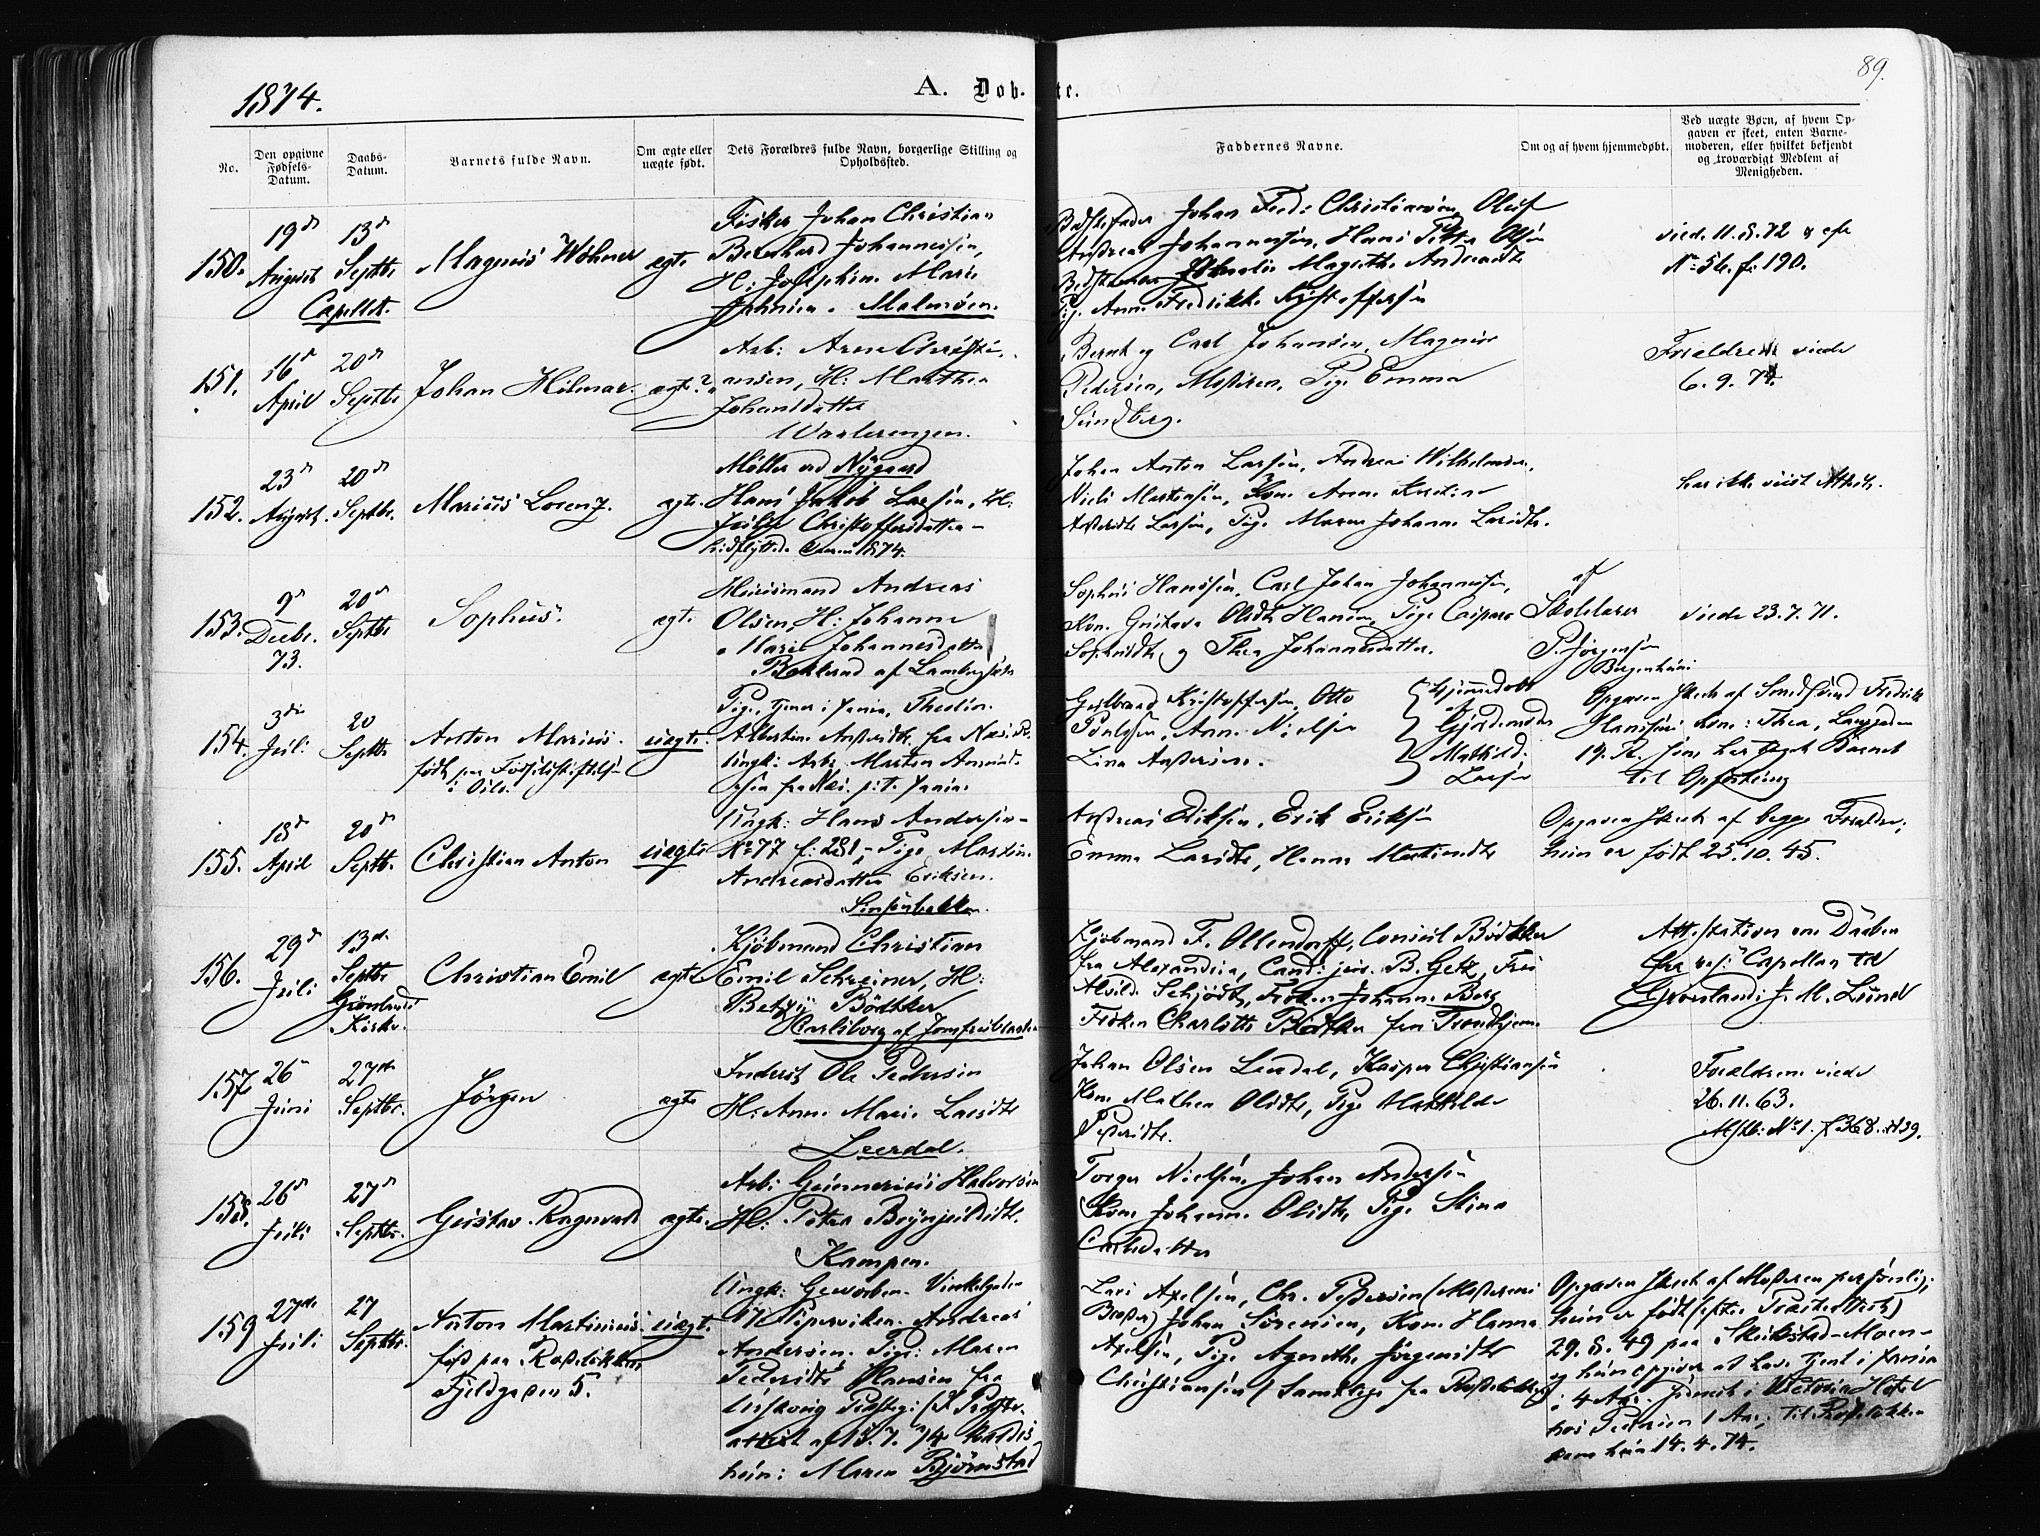 89.
1874.
A. Døbte.
No.
Den opgivne Fødsels-Datum.
Daabs-Datum.
Barnets fulde Navn.
Om ægte eller uægte født.
Dets Forældres fulde Navn, borgerlige Stilling og Opholdssted.
Faddernes Navne.
Om og af hvem hjemmedøbt.
Ved uægte Børn, af hvem Opgaven er skeet, enten Barnemoderen, eller hvilket bekjendt og troværdigt Medlem af Menigheden.
150.
19d August
13d Septbr
Capellet.
Magnus Wöhner
ægte
Fisker Johan Christian
Bernhard Johannesen,
H: Josephine Marie
Malmøen.
Johan Fredr Christiansen, Oluf
Johannesen, Hans Petter Olsen
Magrethe Andreasdtr
Pig. Anne Fredrikke Kristoffersen
viede 11.8.72
No 56. f. 190.
151.
16d April
20d Septbr
Johan Hilmar.
ægte?
Arb: Arne Christi-
ansen, H: Marthea
Johansdatter
Waalerengen.
Bernt og Carl Johansen, Magnus
Pedersen, Moderen, Pige Emma
Sundberg.
Forældrene viede
6.9.74.
152.
23d August.
20d Septbr.
Marius Lorenz.
ægte.
Møller ved Nygaard
Hans Jakob Larsen, H:
Christoffersdatter
1874.
Johan Anton Larsen, Andreas Wilhelmsen,
Niels Martensen, Kone Anne
Larsen, Pige Maren Johanne Larsdtr.
har ikke viist Attest.
153.
9d Decbr. 73.
20d Septbr
Sophus.
ægte
Huusmand Andreas
Olsen, H: Johanne
Marie Johannesdatter
Bakkerud af Lambertseter
Sophus Hanssen, Carl Johan Johannesen,
Kon. Gustava Olsdtr Hansen, Pige Caspare
og Thea Johannesdatter.
af
Skolelærer
P. Jørgensen
Bergenhuus
viede 23.7.71.
154.
3die Juli
20 Septbr
Anton Marius.
født paa Fødselsstiftelsen
i Oslo.
uægte.
Pige, tjener i Xania, Thedine
Albertine fra Næs
Ungk: Arb. Morten Amund-
sen fra Næs p.t. Xania
Gulbrand Kristoffersen, Otto
Poulsen, Anne Nielsen
Lina Andersen.
Hjemmedøbt
Gjordemoder
Mathilde
Larsen
Opgaven skeet af Smedsvend Fredrik
Hansens Kone: Thea, Langgaden
19. som har faaet Barnet
til Opfostring
155.
18d April
20d Septbr.
Christian Anton
uægte
Ungk: Hans Andersen
No 77 f: 281. Pige Martine
Andreasdatter Eriksen.
Sinsenbakken.
Andreas Eriksen, Erik Eriksen
Emma Larsdtr, Hanna Martinsdtr
Opgaven skeet af begge Forældre;
hun er født 25.10.45.
156.
29d Juli
13d Septbr
Grønlands Kirke.
Christian Emil
ægte
Kjøbmand Christian
Emil Schreiner, H:
Betzy Bødtker
Carlsborg af Jomfrubraaten
Kjøbmand F. Ollendorff, Consul Bødtker
fra Alexandria, Cand: jur. B. Getz, Fru
Alvilde Schjødt, Frøken Johanne Berg
Frøken Charlotte Bødtker fra Trondhjem
Attestation om Daaben
fra res: Capellan til
Grønland: J. M. Lund
157
26d Juni
27d Septbr.
Jørgen
ægte
Inderst Ole Pedersen
H: Anne Marie Larsdtr
Leerdal.
Johan Olsen Leerdal, Kasper Christiansen
Kone Mathea Olsdtr, Pige Mathilde
Pedersdtr.
Forældrene viede
26.11.63.
No 1. f 368.
158.
26d Juli
27d Septbr.
Gustav Ragnvald
ægte.
Arb: Gunnerius Halvorsen
H: Petra Brynjulfsdtr.
Kampen.
Torger Nielsen, Johan Andersen
Kone Johanne Olsdtr, Pige Stina
Carlsdatter
159
27de Juli
27 Septbr.
Anton Martinius
fød paa Rodeløkken
Fjeldgaden 5.
uægt.
Ungk: Garverb. Vinkelgaden
17 Piperviken. Andreas
Andersen. Pige: Maren
Pedersdtr Hansen fra
Urskoug Præstegj:
attest af 13.7.74 kaldes
hun: Maren Bjørnstad
Lars Axelsen, Chr. Pedersen (Moderens
Broder) Johan Sørensen, Kone Hanna
Axelsen, Pige Agnethe Jørgensdtr
Christiansen (Samtlige fra Rodeløkken)
Opgaven skeet af Moderen personlig;
hun er født (efter Præsteattest)
29.8.49 paa
og hun opgiver at have tjent i Xania
i 4 Aar. Victoria Hotel
hos Pedersen 1 Aar; til Rodeløkken
kom hun 14.4.74.